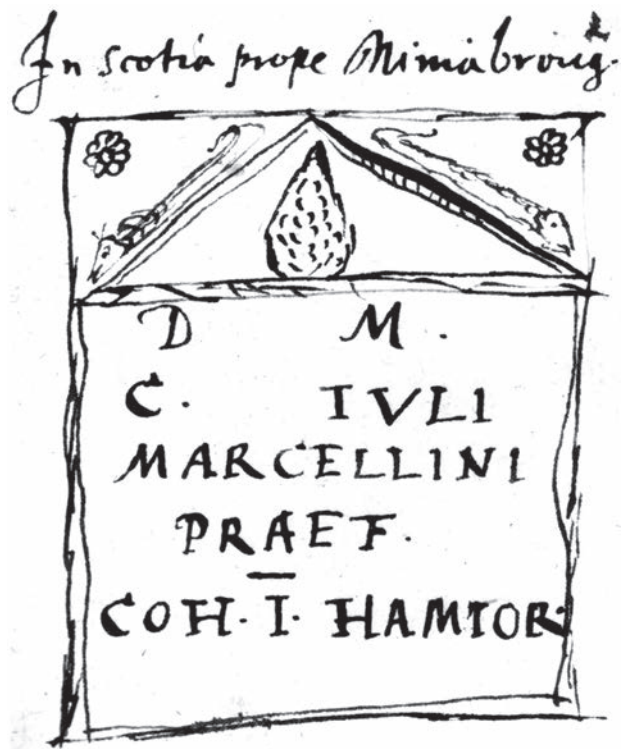 In scotia prope Miniabroug.
D M.
C. IVLI
MARCELLINI
PRAEF.
COH. I. HAMIOR.